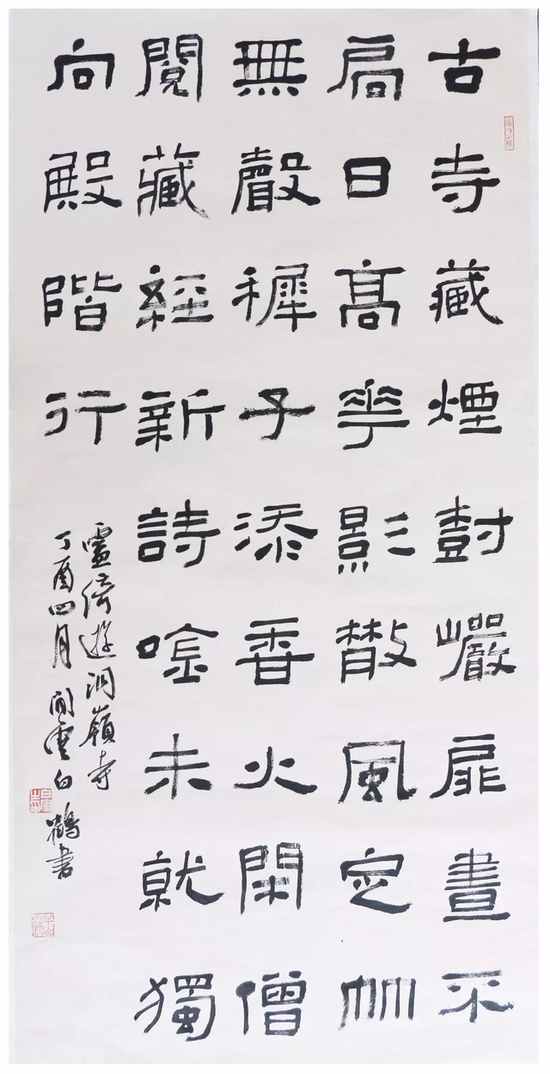 古寺藏煙封巖扉晝不
扃日高華影散風定竹
無聲穉子添香火閑僧
閱藏經新詩唫未就獨
向殿階行
盧琦遊洞嶺寺
丁酉四月閒雲白鶴書